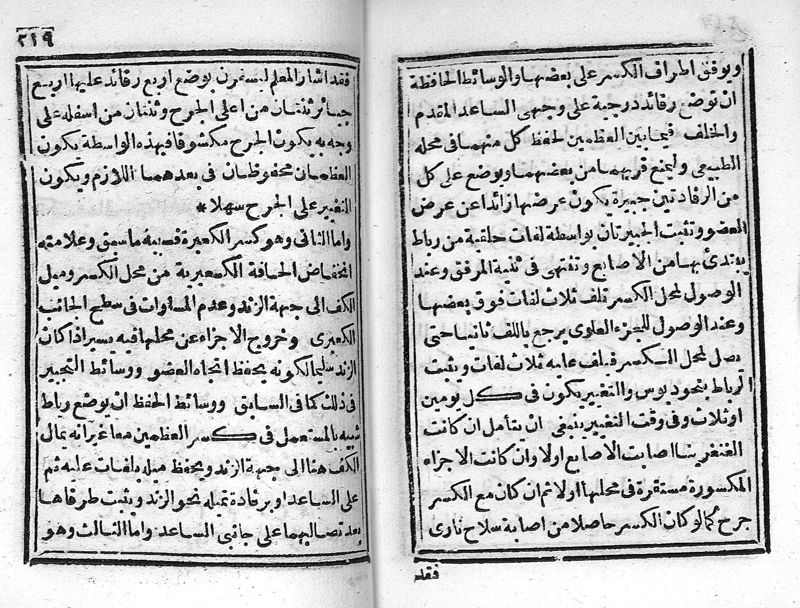 ويوفق اطراف الكسر على بعضها والوسائط الحافظة
ان توضع رفائد درجية على وجهى الساعد المقدم
والخلف فيما بين العظمين لحفظ كل منهما فى محله
الطبيعى وليمنع قربهما من بعضهما ويوضع على كل
من الرفادتين جبيرة يكون عرضها زائدا عن عرض
العضو وتثبت الجبيرتان بواسطة لفات حلقية من رباط
يبتدئ بها من الاصابع وتنتهى فى ثنية المرفق وعند
الوصول لمحل الكسر تلف ثلاث لفات فوق بعضها
وعند الوصول للجزء العلوى يرجع باللف ثانيا حتى
يصل لمحل الكسر فيلف عليه ثلاث لفات ويثبت
الرباط بنحو دبوس والتغيير يكون فى كل يومين
او ثلاث وفى وقت التغيير ينبغى ان يتأمل ان كانت
الغنغرينا اصابت الاصابع اولا وان كانت الاجزاء
المكسورة مستقرة فى محلها اولا ثم ان كان مع الكسر
جرح كما لو كان الكسر حاصلا من اصابة سلاح نارى
فقد
٢١٩
فقد اشار المعلم لبسفرن بوضع اربع رفائد عليها اربع
جبائر ثنتان من اعلى الجرح وثنتان من اسفله على
وجه به يكون الجرح مكشوفا فبهذه الواسطة يكون
العظمان محفوظان فى بعدهما اللازم ويكون
التغيير على الجرح سهلا *
واما الثانى وهو كسر الكعبرة فسببه ما سبق وعلامته
انخفاض الحافة الكعبرية من محل الكسر وميل
الكف الى جهة الزند وعدم المساوات فى سطح الجانب
الكعبرى وخروج الاجزاء عن محلها فيه يسير اذا كان
الزند سليما لكونه يحفظ اتجاه العضو ووسائط التجبير
فى ذلك كما فى السابق ووسائط الحفظ ان يوضع رباط
شبيه بالمستعمل فى كسر العظمين معا غير انه يمال
الكف هنا الى جهة الزند ويحفظ ميله بلفات عليه ثم
على الساعد او برفادة تميله نحو الزند ويثبت طرفاها
بعد تصالبهما على جانبى الساعد واما الثالث وهو